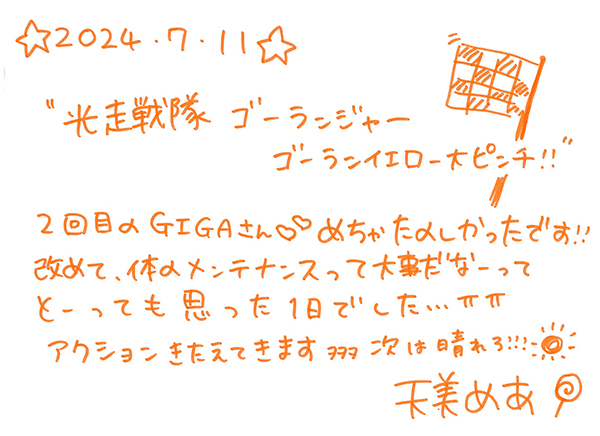 ☆2024.7.11☆
"光走戦隊 ゴーランジャー
ゴーランイエロー大ピンチ!!"
2回目のGIGAさん♡♡めちゃたのしかったです!!
改めて、体のメンテナンスって大事だなーって
とーっても思った1日でした...ㅠㅠ
アクションきたえてきますヨヨヨ 次は晴れろ!!!
天美めあ